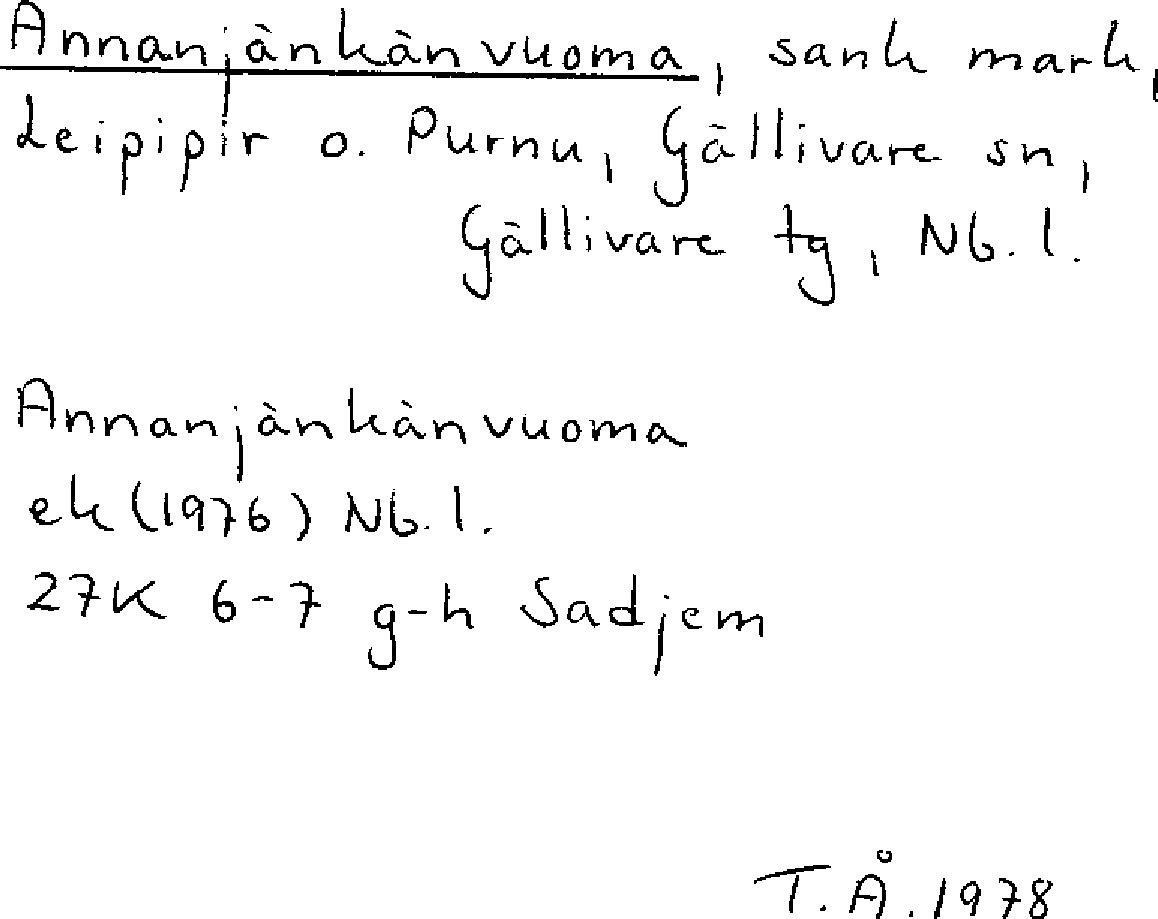 Annanjänkänvuoma, sank mark,
Leipipir o. Purnu, Gällivare sn,
Gällivare tg, Nb. l.
Annanjänkänvuoma
ek (1976) Nb. l.
27K 6-7 g-h Sadjem
T.Å. 1978